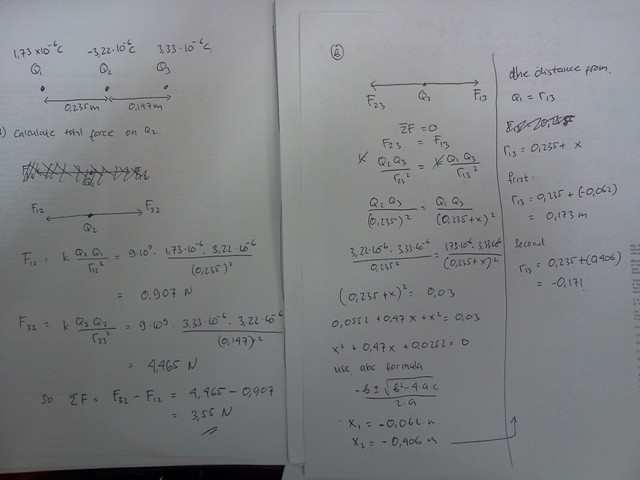 1,73 x10⁻⁶C -3,22.10⁻⁶C 3.33.10⁻⁶C
Q₁ Q₂ Q₃
0,235m 0,147m
Calculate total force on Q₂
F₁₂ F₃₂
Q₂
F₁₂ = k Q₂ Q₁ / r₁₂² = 9.10⁹. 1,73.10⁻⁶. 3,22.10⁻⁶ / (0,235)²
= 0,907 N
F₃₂ = k Q₃ Q₂ / r₂₃² = 9.10⁹. 3,33.10⁻⁶. 3,22.10⁻⁶ / (0,147)²
= 4,465 N
so ΣF = F₃₂ - F₁₂ = 4,465 - 0,907
= 3,55 N
b
F₂₃ Q₃ F₁₃
ΣF = 0
F₂₃ = F₁₃
k Q₂ Q₃ / r₂₃² = k Q₁ Q₃ / r₁₃²
Q₂ Q₃ / (0,235)² = Q₁ Q₃ / (0,235+x)²
3,22.10⁻⁶. 3,33.10⁻⁶ / 0,235² = 1,73.10⁻⁶. 3,33.10⁻⁶ / (0,235+x)²
(0,235+x)² = 0,03
0,0552 + 0,47x + x² = 0,03
x² + 0,47x + 0,0252 = 0
use abc formula
-b ± √b²-4.a.c / 2.a
x₁ = -0,062 m
x₂ = -0,406 m
the distance from
Q₁ = r₁₃
r₁₃ = 0,235 + x
first:
r₁₃ = 0,235 + (-0,062)
= 0,173 m
Second
r₁₃ = 0,235 + (0,406)
= -0,171